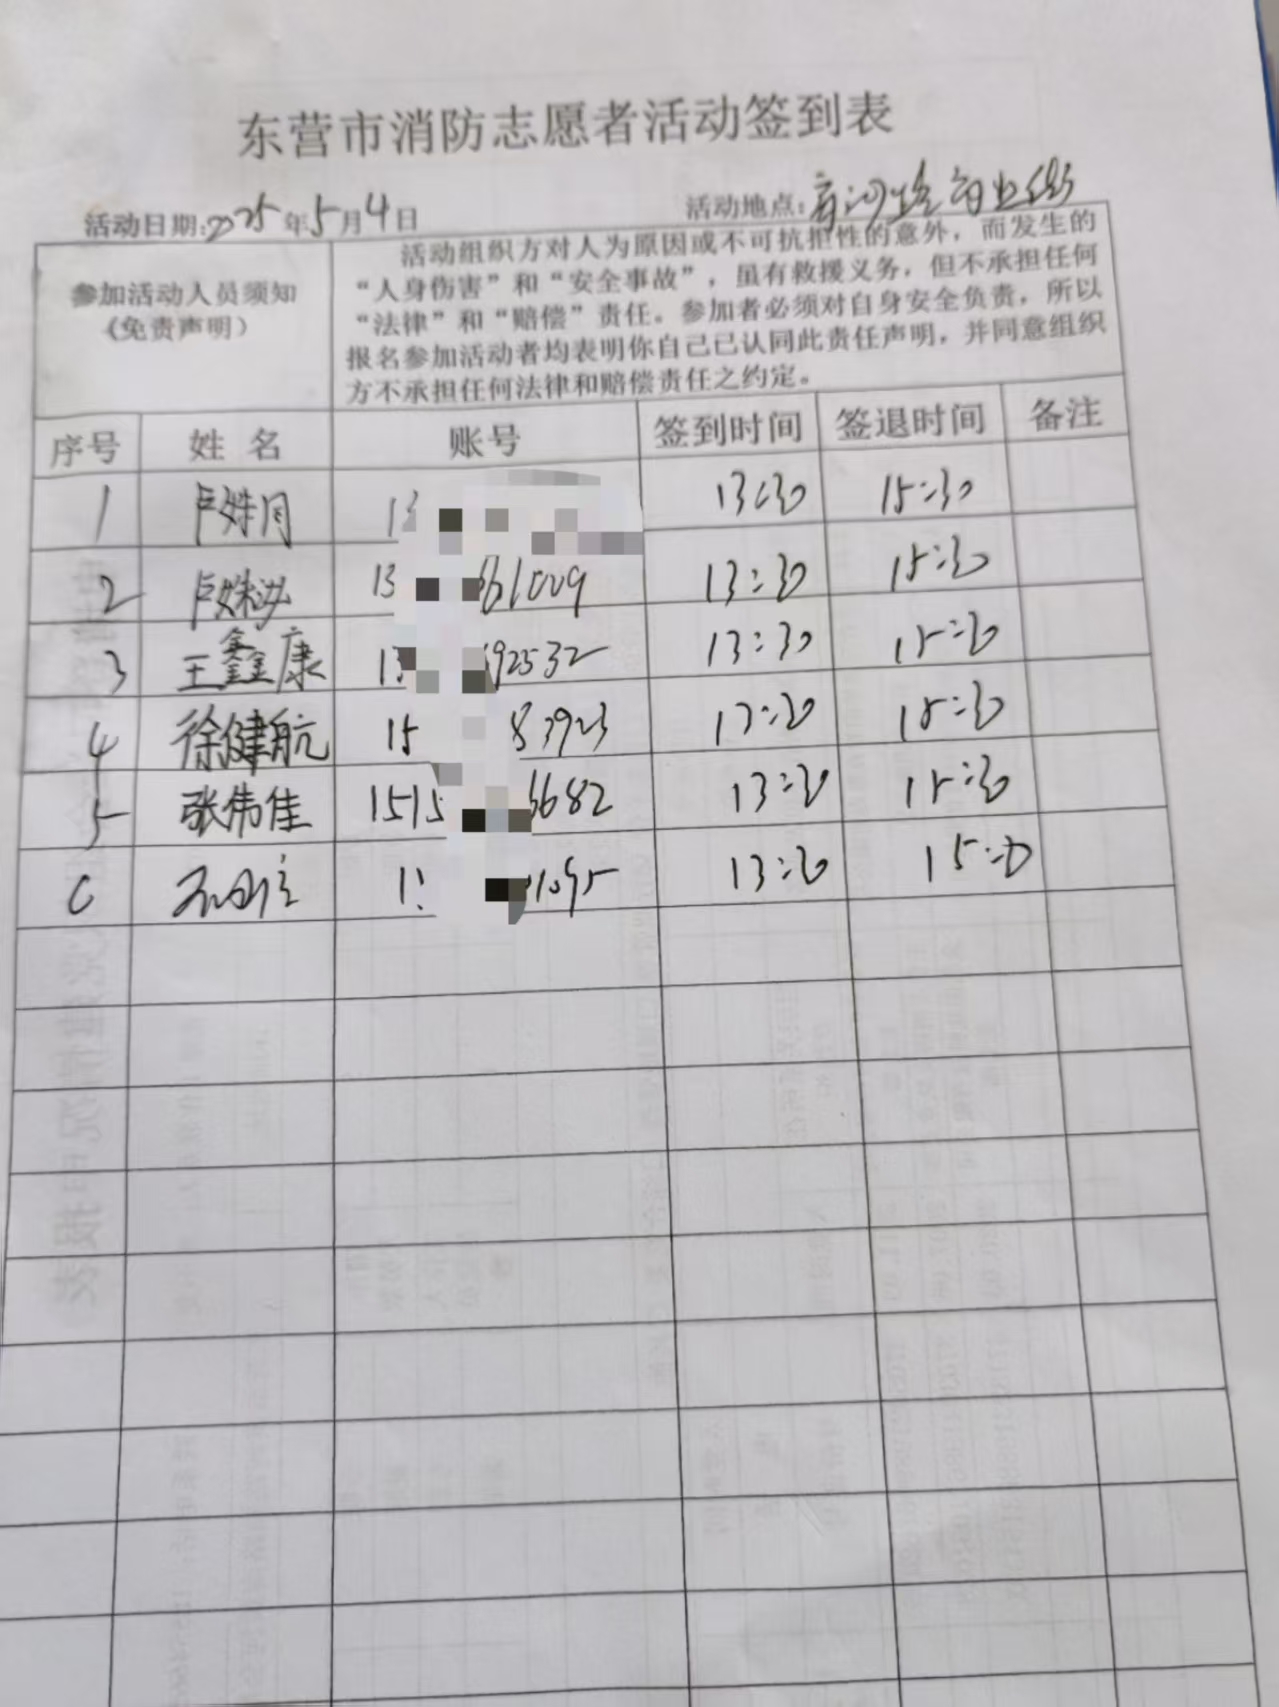 东营市消防志愿者活动签到表
活动日期:2025年5月4日 活动地点:商业街
参加活动人员须知
(免责声明)
活动组织方对人为原因或不可抗拒性的意外，而发生的
“人身伤害”和“安全事故”，虽有救援义务，但不承担任何
“法律”和“赔偿”责任。参加者必须对自身安全负责，所以
报名参加活动者均表明你自己已认同此责任声明，并同意组织
方不承担任何法律和赔偿责任之约定。
序号 姓名 账号 签到时间 签退时间 备注
1 卢姝 13 13:30 15:30
2 卢姝 13 61009 13:30 15:30
3 王鑫康 13 92532 13:30 15:30
4 徐健航 15 83923 13:30 15:30
5 张伟佳 1515 6682 13:30 15:30
6 1 1095 13:30 15:30